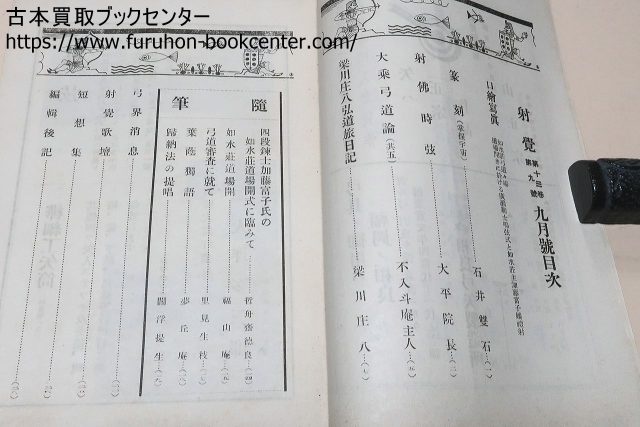 古本買取ブックセンター
https://www.furuhon-bookcenter.com/
射覺 第十三卷 第九號 九月號目次
口繪寫眞
篆刻（掌裡宇宙）……石井雙石…（一）
射佛時弦……大平院長…（二）
大乘弓道論（其五）……不入斗庵主人…
梁川庄八弘道旅日記……梁川庄八…（九）
隨筆
四段鍊士加藤富子氏の
如水莊道場開式に臨みて……哲舟齋德良…（四）
如水莊道場開……福山庵…
弓道審査に就て……里見生枝…
葉蔭獨語……夢丘庵…
歸納法の提唱……閻浮提生…
弓界消息
射覺歌壇
短想集
編輯後記